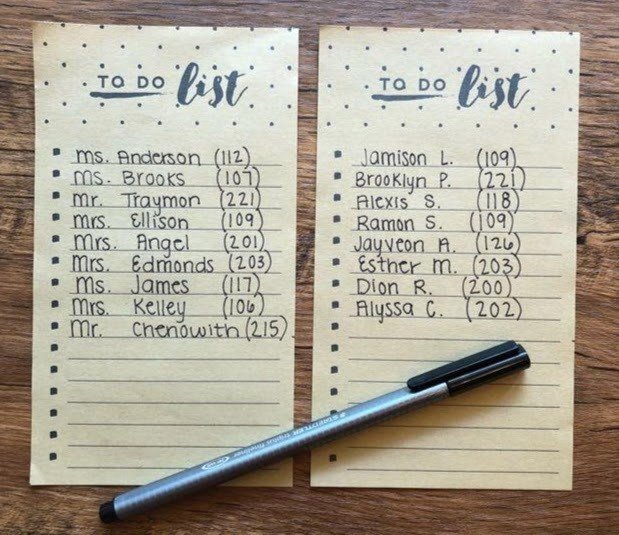 TO DO list
Ms. Anderson (112)
Ms. Brooks (107)
Mr. Traymon (221)
Mrs. Ellison (109)
Mrs. Angel (201)
Mrs. Edmonds (203)
Ms. James (117)
Mrs. Kelley (106)
Mr. Chenowith (215)
TO DO list
Jamison L. (109)
Brooklyn P. (221)
Alexis S. (118)
Ramon S. (109)
Jayveon A. (126)
Esther M. (203)
Dion R. (200)
Alyssa C. (202)
STAEDTLER triplus fineliner